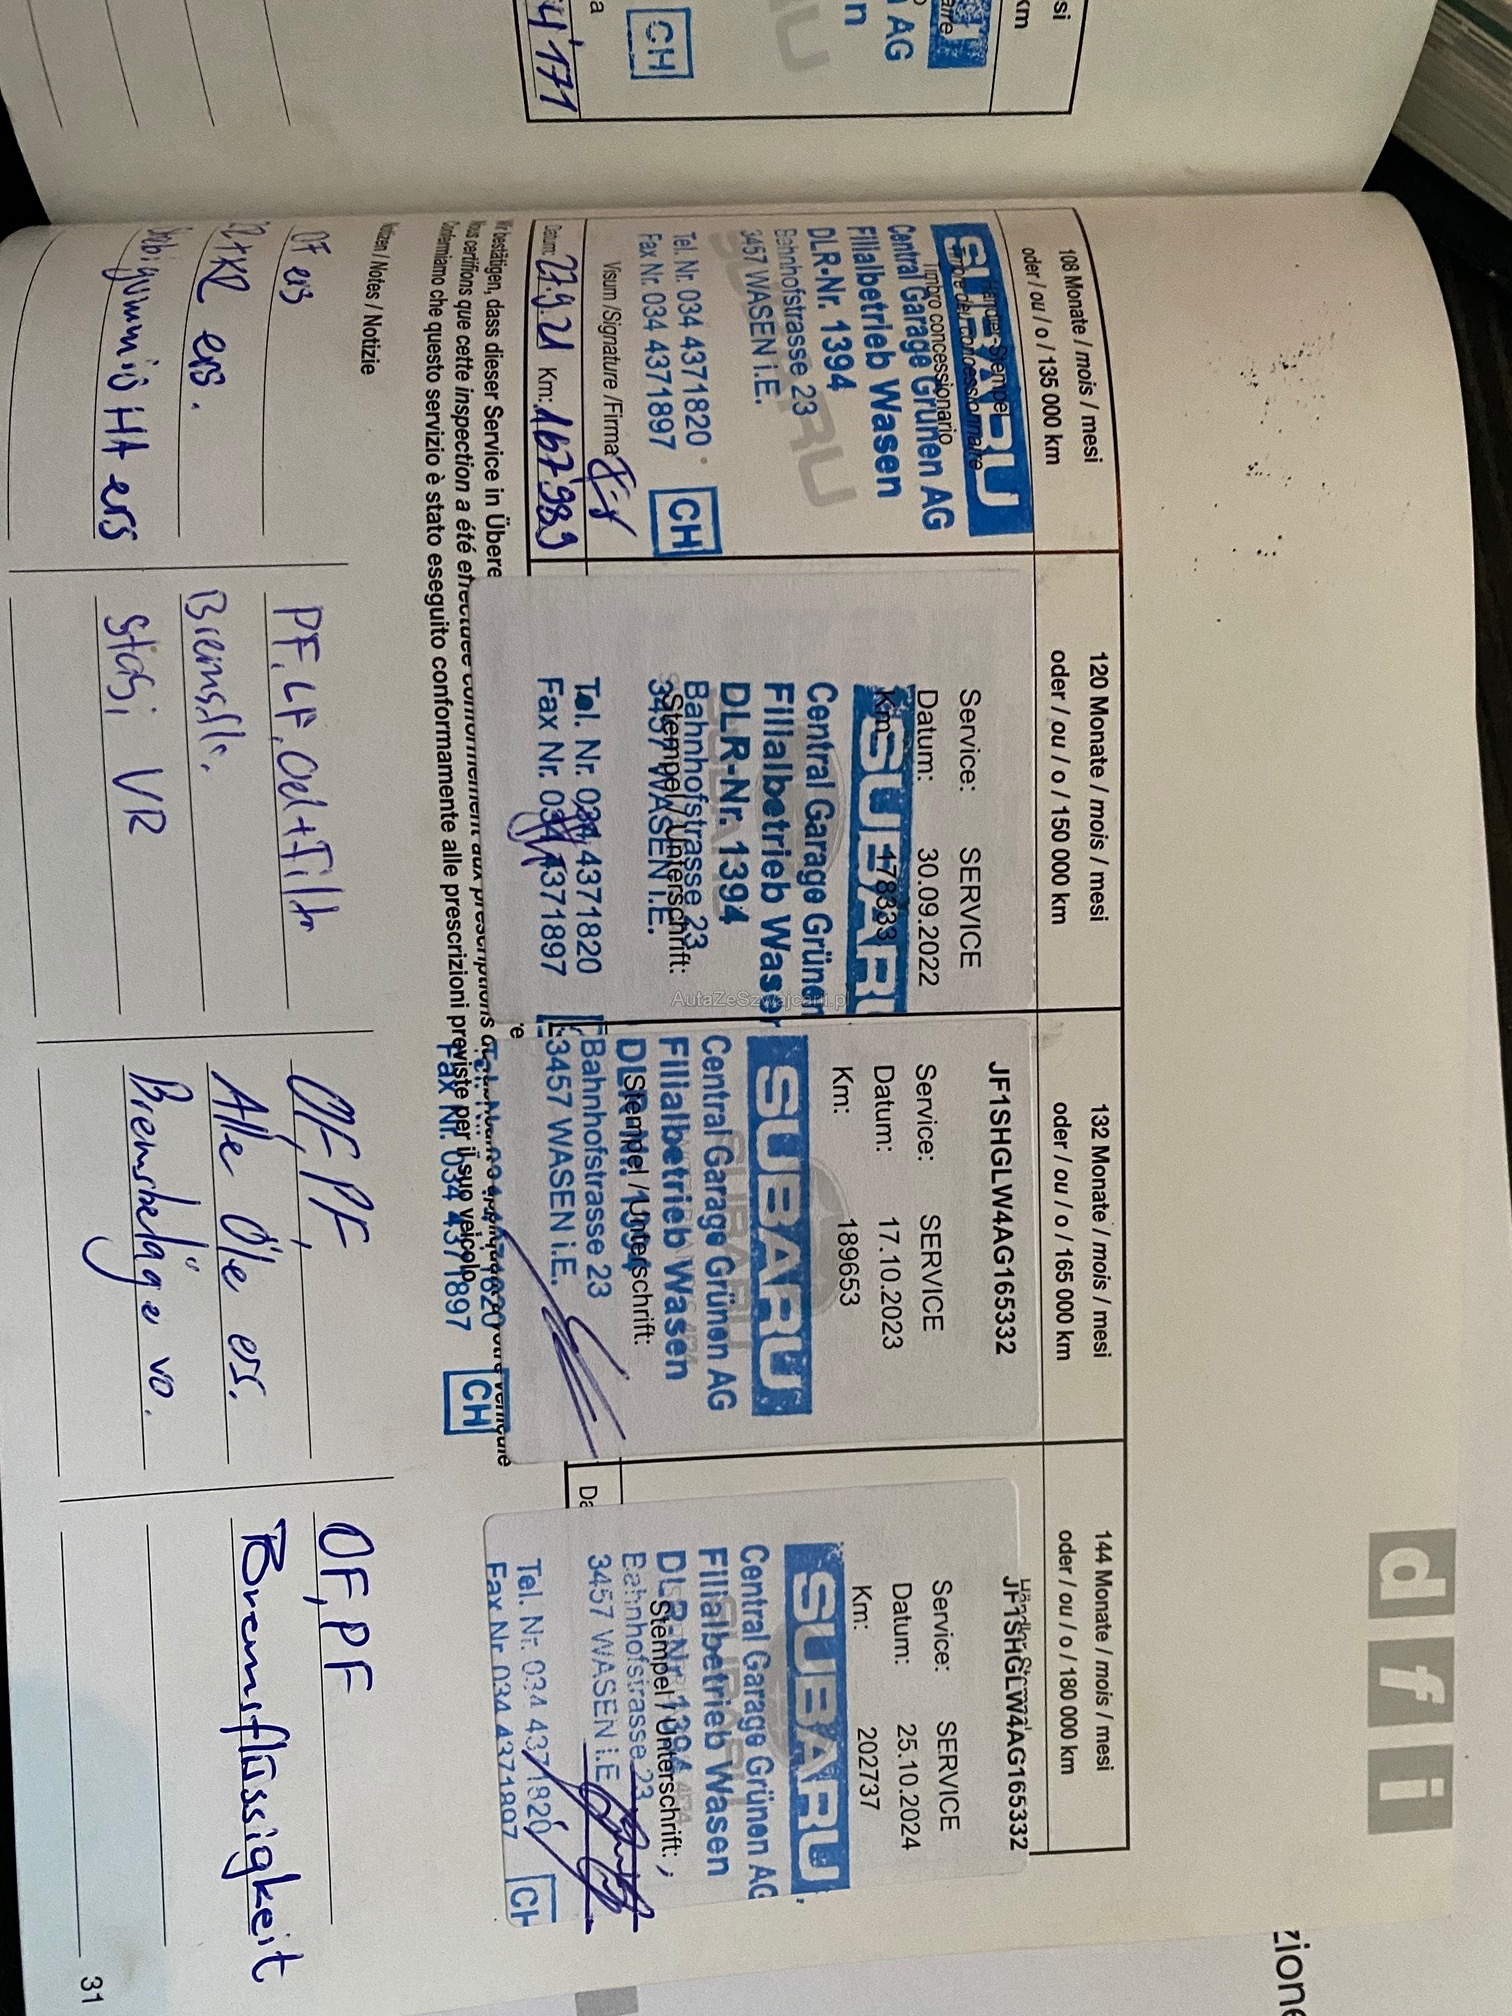 si
km
AG
n
a
CH
4'171
d f i
108 Monate / mois / mesi
oder / ou / o / 135 000 km
Händler-Stempel
Timbre del concessionnaire
Timbro concessionario
SUBARU
Central Garage Grünen AG
Filialbetrieb Wasen
DLR-Nr. 1394
Bahnhofstrasse 23
3457 WASEN i.E.
Tel. Nr. 034 4371820
Fax Nr. 034 4371897
CH
Visum /Signature /Firma
Datum: 27.9.21 Km: 167'989
120 Monate / mois / mesi
oder / ou / o / 150 000 km
Service: SERVICE
Datum: 30.09.2022
Km: 178333
SUBARU
Central Garage Grünen
Filialbetrieb Wasen
DLR-Nr. 1394
Bahnhofstrasse 23
Stempel / Unterschrift:
3457 WASEN i.E.
Tel. Nr. 034 4371820
Fax Nr. 034 4371897
132 Monate / mois / mesi
oder / ou / o / 165 000 km
JF1SHGLW4AG165332
Service: SERVICE
Datum: 17.10.2023
Km: 189653
SUBARU
Central Garage Grünen AG
Filialbetrieb Wasen
DLR-Nr. 1394
Stempel / Unterschrift:
Bahnhofstrasse 23
3457 WASEN i.E.
Fax Nr. 034 4371897
CH
144 Monate / mois / mesi
oder / ou / o / 180 000 km
JF1SHGLW4AG165332
Service: SERVICE
Datum: 25.10.2024
Km: 202737
SUBARU
Central Garage Grünen AG
Filialbetrieb Wasen
DLR-Nr. 1394
Stempel / Unterschrift:
Bahnhofstrasse 23
3457 WASEN i.E
Tel. Nr. 034 4371820
Fax Nr. 034 4371897
CH
Da
Wir bestätigen, dass dieser Service in Übere
Nous certifions que cette inspection a été effectuée conformément aux prescriptions
Confermiamo che questo servizio è stato eseguito conformamente alle prescrizioni previste per il suo veicolo.
Notizen / Notes / Notizie
OF ers
ers.
HA ers
PF, LF, Oel + Filter
Bremsfl.
Stabi VR
OF, PF
Alle Öle ers.
Bremsbeläge vo.
OF, PF
Bremsflüssigkeit
31
zione
AutaZeSzwajcarii.pl